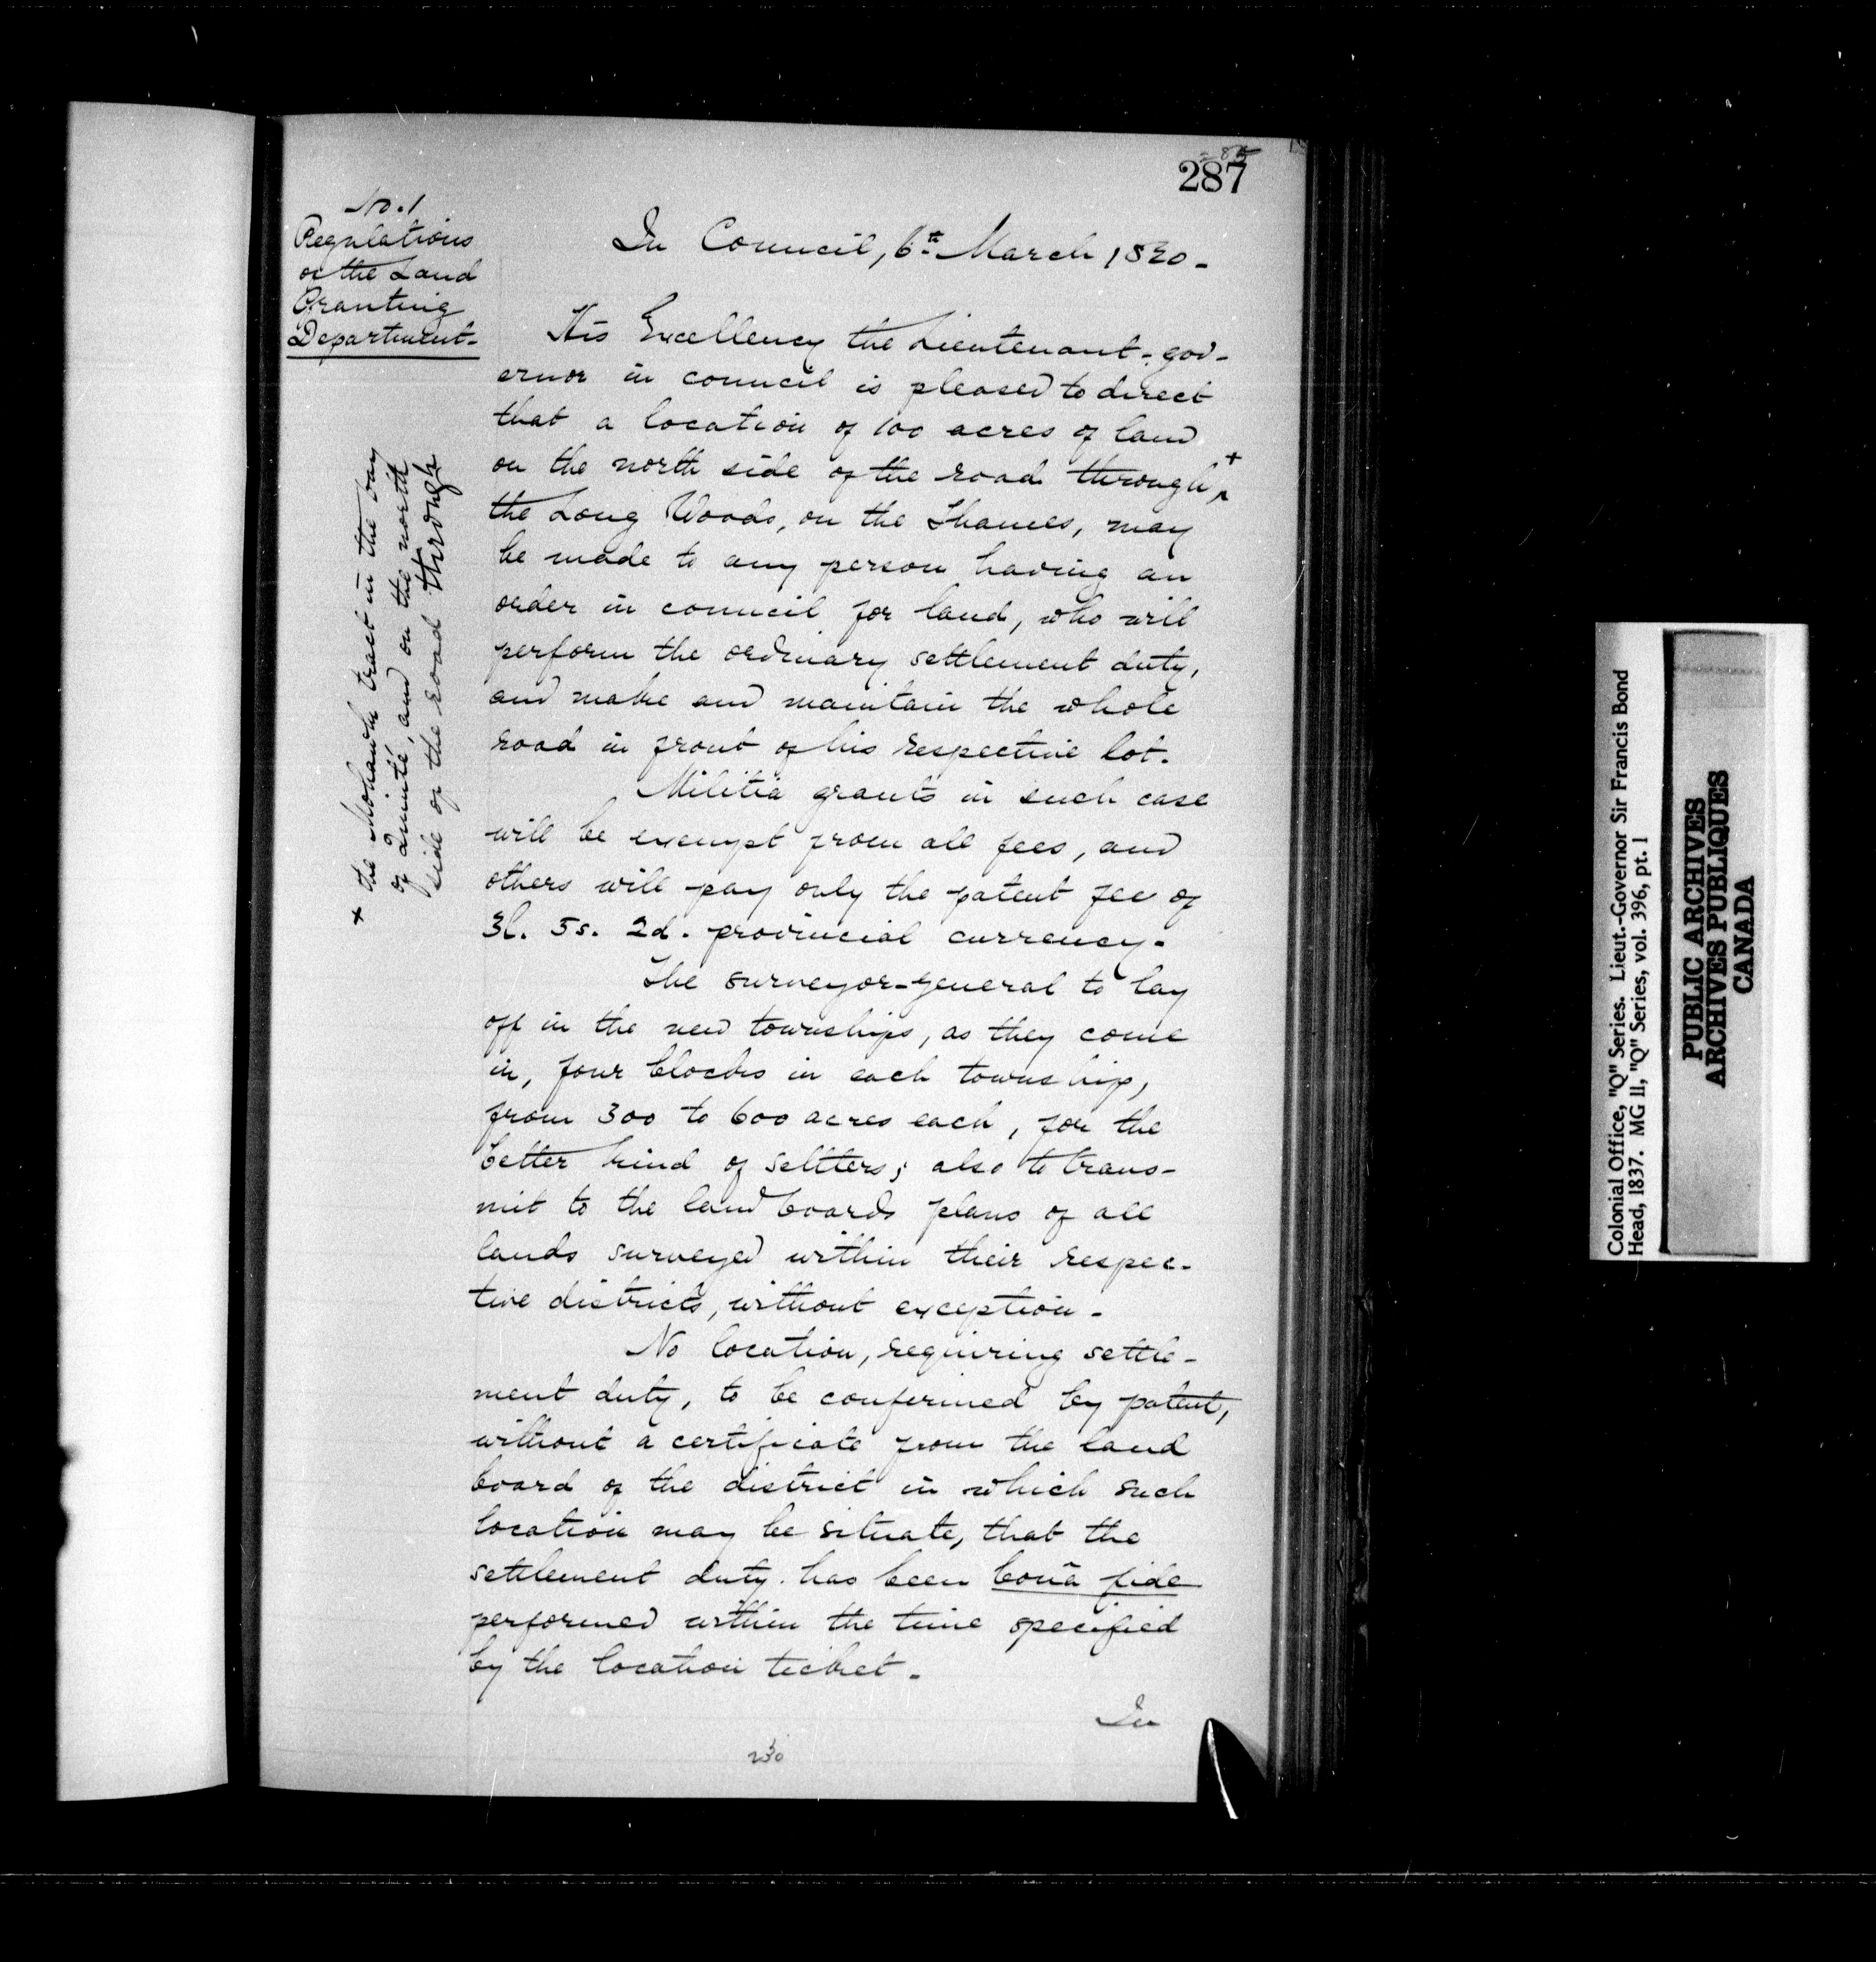 287
No. 1
Regulations
of the Land
Granting
Department.
In Council, 6th March 1820.
His Excellency the Lieutenant-gov-
ernor in council is pleased to direct
that a location of 100 acres of land
on the north side of the road through +
the Long Woods, on the Thames, may
be made to any person having an
order in council for land, who will
perform the ordinary settlement duty,
and make and maintain the whole
road in front of his respective lot.
Militia grants in such case
will be exempt from all fees, and
others will pay only the patent fee of
3l. 5s. 2d. provincial currency.
The surveyor-general to lay
off in the new townships, as they come
in, four blocks in each township,
from 300 to 600 acres each, for the
better kind of settlers; also to trans-
mit to the land boards plans of all
lands surveyed within their respec-
tive districts, without exception.
No location, requiring settle-
ment duty, to be confirmed by patent,
without a certificate from the land
board of the district in which such
location may be situate, that the
settlement duty has been bonâ fide
performed within the time specified
by the location ticket.
In
230
+ the Mohawk tract in the bay
of Quinté, and on the north
side of the road through
Colonial Office, "Q" Series. Lieut.-Governor Sir Francis Bond
Head, 1837. MG 11, "Q" Series, vol. 396, pt. 1
PUBLIC ARCHIVES
ARCHIVES PUBLIQUES
CANADA